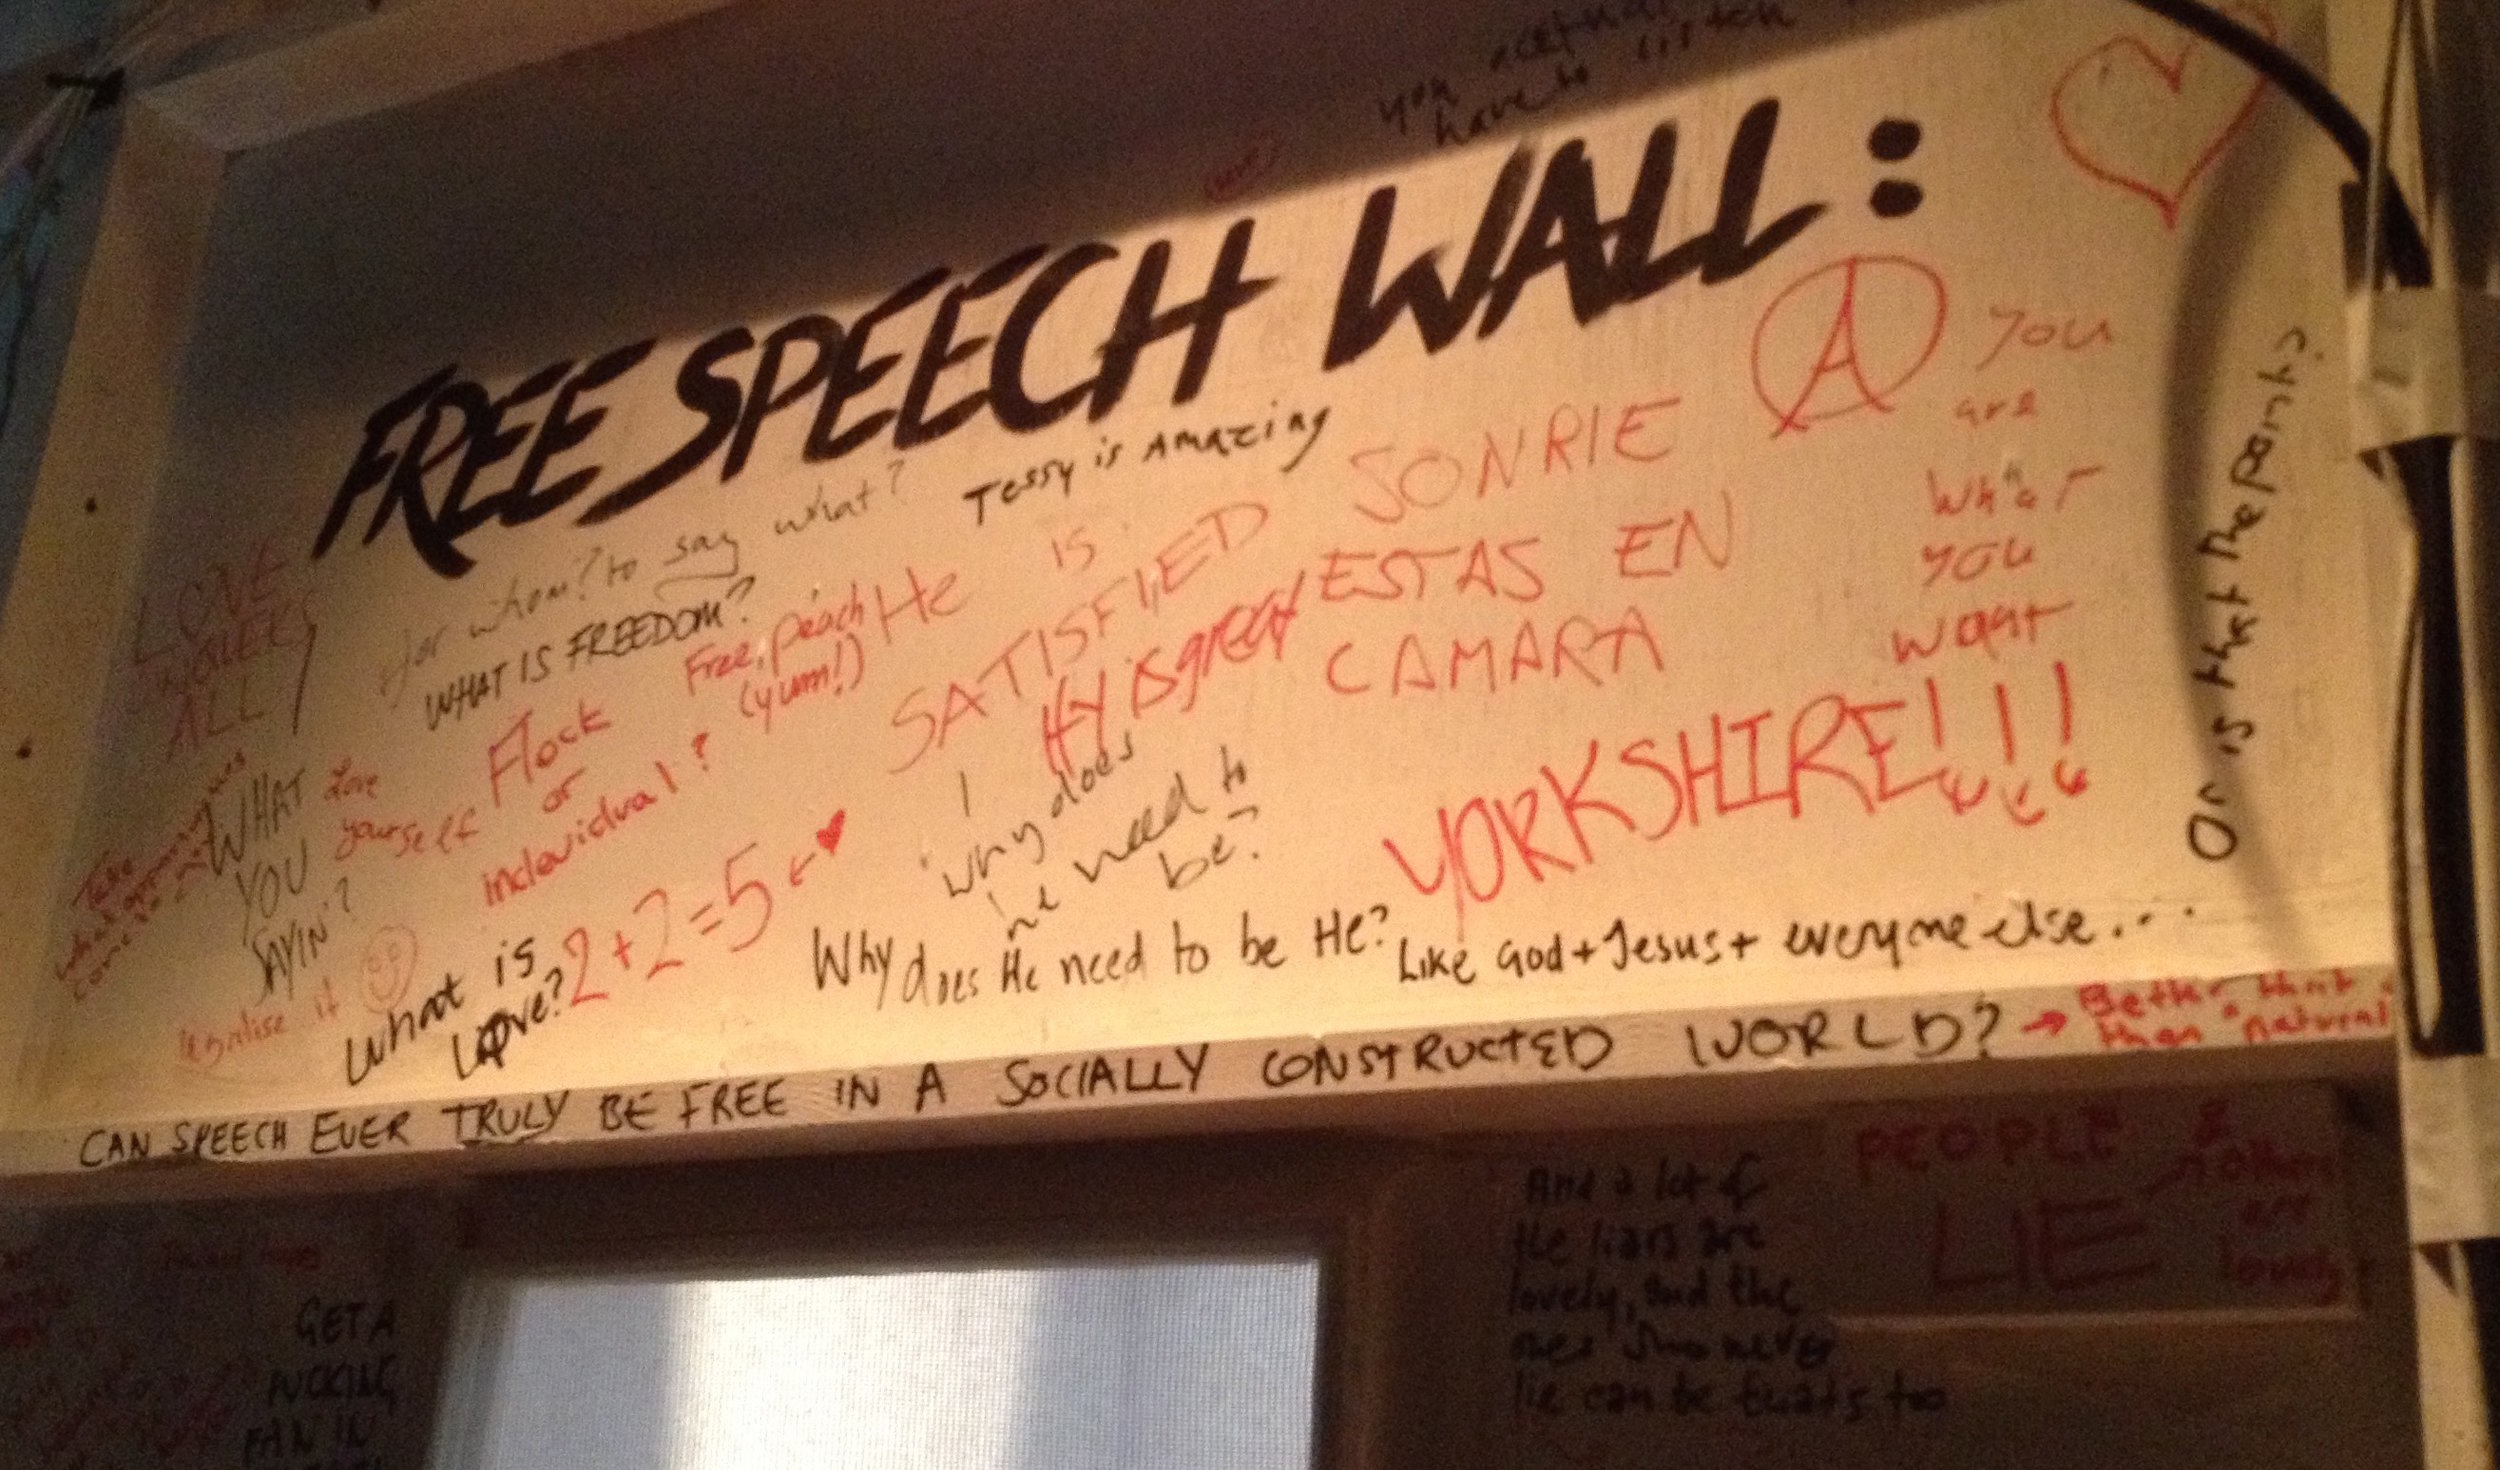 you
have to listen
FREE SPEECH WALL:
for whom? to say what?
Tessy is Amazing
WHAT IS FREEDOM?
Free, peach
(yum!)
He is
SATISFIED
SONRIE
ESTAS EN
CAMARA
YOU
are
WHAT
YOU
want
Or is that the point?
LOVE
ALL
WHAT
YOU
SAYIN'?
Love
yourself
Flock
or
individual?
is great
Why does
he need to
be?
YORKSHIRE!!!
2+2=5
What is
Love?
Why does He need to be He?
Like God + Jesus + everyone else...
legalise it
CAN SPEECH EVER TRULY BE FREE IN A SOCIALLY CONSTRUCTED WORLD?
Better that
than "natural
PEOPLE
LIE
others
are
lovely
And a lot of
the liars are
lovely, and the
ones who never
lie can be twats too
GET A
FUCKING
FAN IN